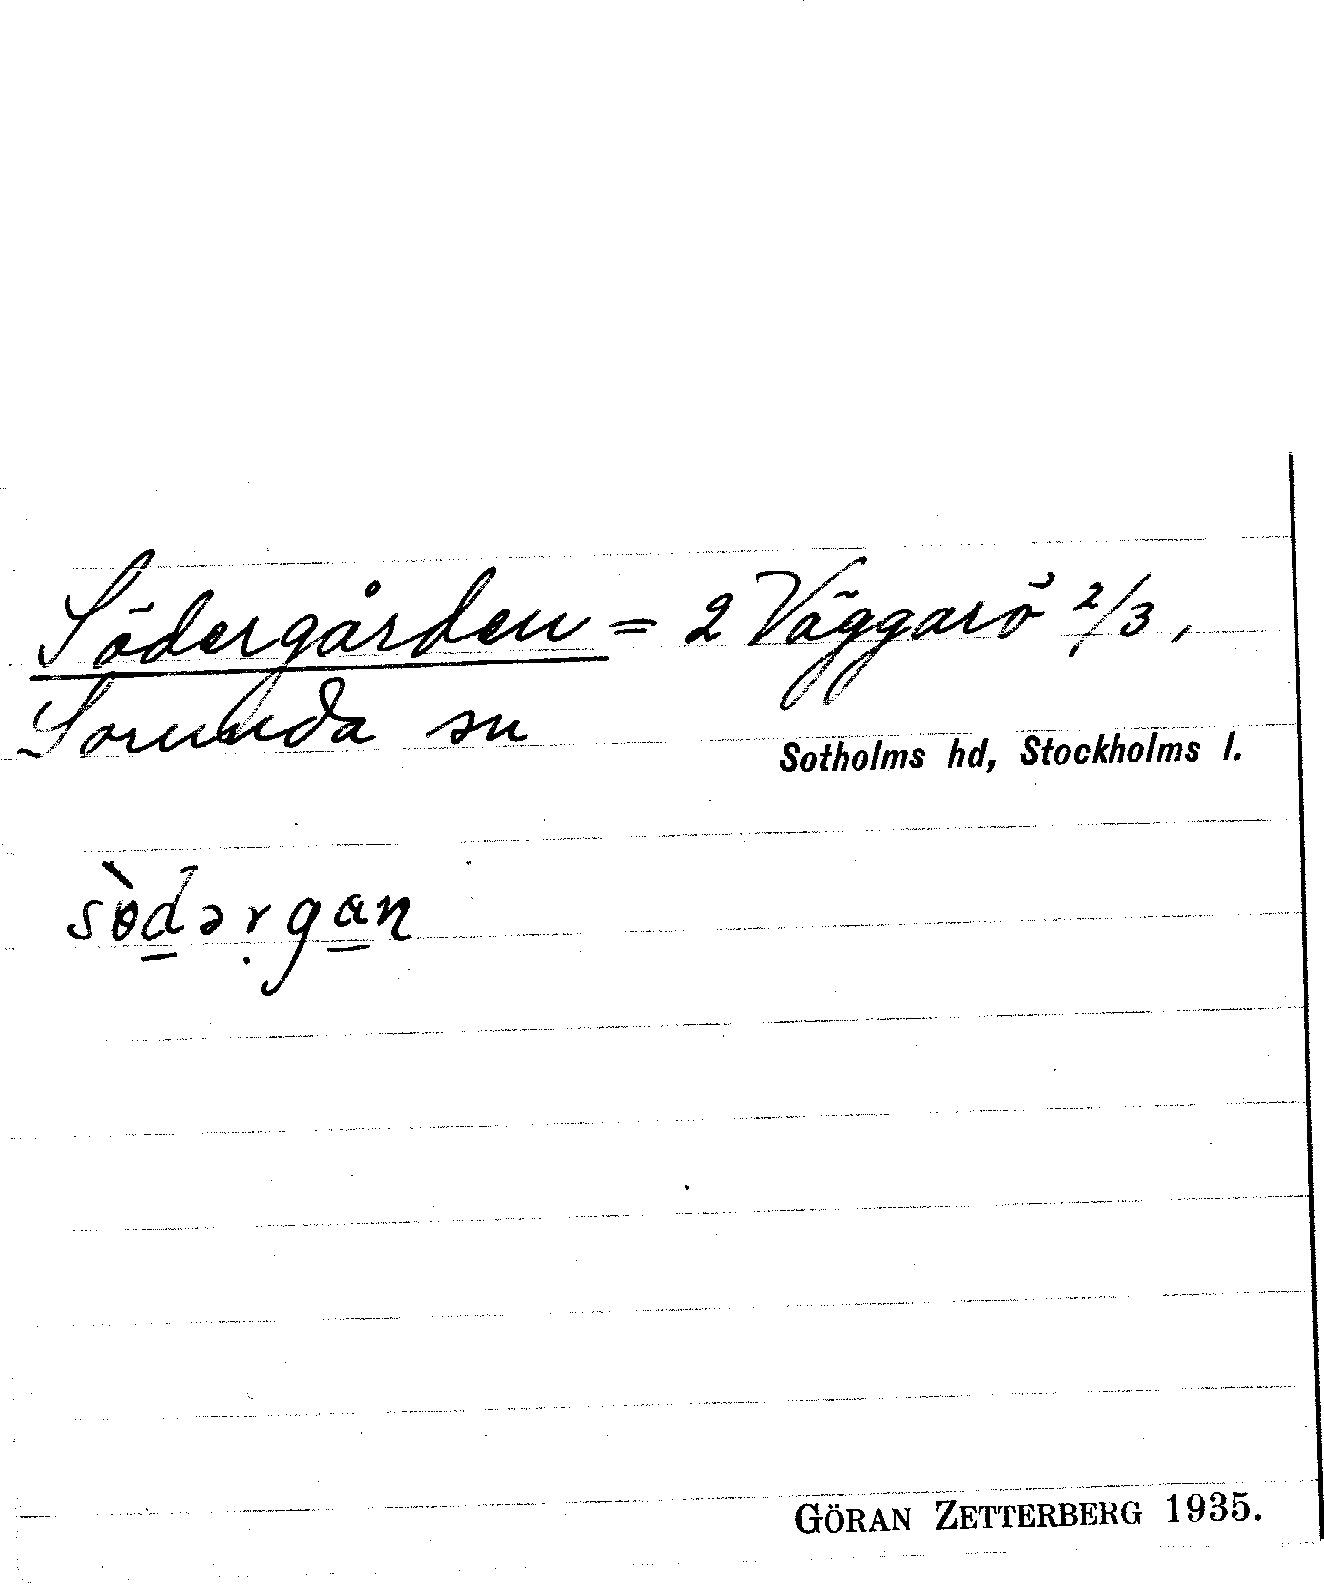 Södergården = 2 Väggarö 2/3,
Sorunda sn
Sotholms hd, Stockholms l.
sö̀dərgan
GÖRAN ZETTERBERG 1935.